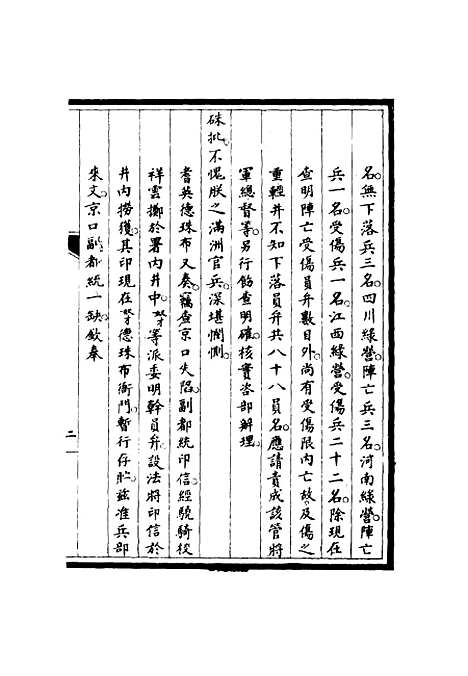 名。無下落兵三名。四川綠營。陣亡兵三名。河南綠營。陣亡
兵一名。受傷兵一名。江西綠營。受傷兵二十二名。除現在
查明陣亡受傷員弁數目外。尚有受傷限內亡故。及傷之
重輕并不知下落員弁共八十八員名。應請責成該管將
軍總督等。另行飭查明確。核實咨部辦理。
硃批。不愧朕之滿洲官兵。深堪憫惻。
耆英德珠布又奏。竊查京口失陷。副都統印信。經驍騎校
祥雲擲於署內井中。奴才等派委明幹員弁。設法將印信於
井內撈獲。其印現在奴才德珠布衙門。暫行存貯。茲准兵部
來文。京口副都統一缺。欽奉
二